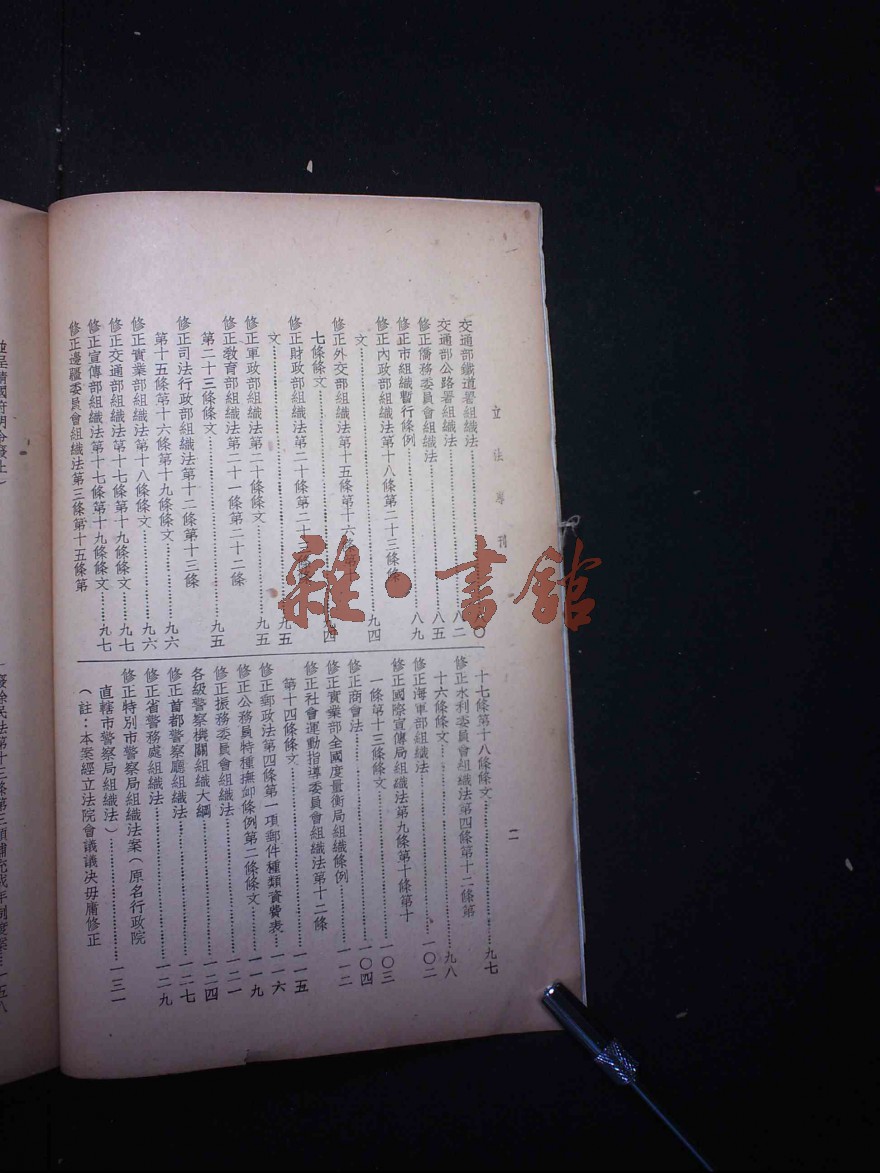 立法專刊
二
交通部鐵道署組織法
交通部公路署組織法……八二
修正僑務委員會組織法……八五
修正市組織暫行條例……八九
修正內政部組織法第十八條第二十三條條
文……九四
修正外交部組織法第十五條第十六條第
七條條文……九四
修正財政部組織法第二十條第二十
文……九五
修正軍政部組織法第二十條條文……九五
修正教育部組織法第二十一條第二十二條
第二十三條條文……九五
修正司法行政部組織法第十二條第十三條
第十五條第十六條第十九條條文……九六
修正實業部組織法第十八條條文……九六
修正交通部組織法第十七條第十九條條文……九七
修正宣傳部組織法第十七條第十九條條文……九七
修正邊疆委員會組織法第三條第十五條第
十七條第十八條條文……九七
修正水利委員會組織法第四條第十二條第
十六條條文……九八
修正海軍部組織法……一〇二
修正國際宣傳局組織法第九條第十條第十
一條第十三條條文……一〇三
修正商會法……一〇四
修正實業部全國度量衡局組織條例……一一二
修正社會運動指導委員會組織法第十二條
第十四條條文……一一五
修正郵政法第四條第一項郵件種類資費表……一一六
修正公務員特種撫卹條例第二條條文……一一九
修正振務委員會組織法……一二一
各級警察機關組織大綱……一二四
修正首都警察廳組織法……一二七
修正省警務處組織法……一二九
修正特別市警察局組織法案（原名行政院
直轄市警察局組織法）……一三一
（註：本案經立法院會議議決毋庸修正
並呈請國府明令廢止）
廢除民法第十三條第三項補充成年制度案……一五八
雜·書館